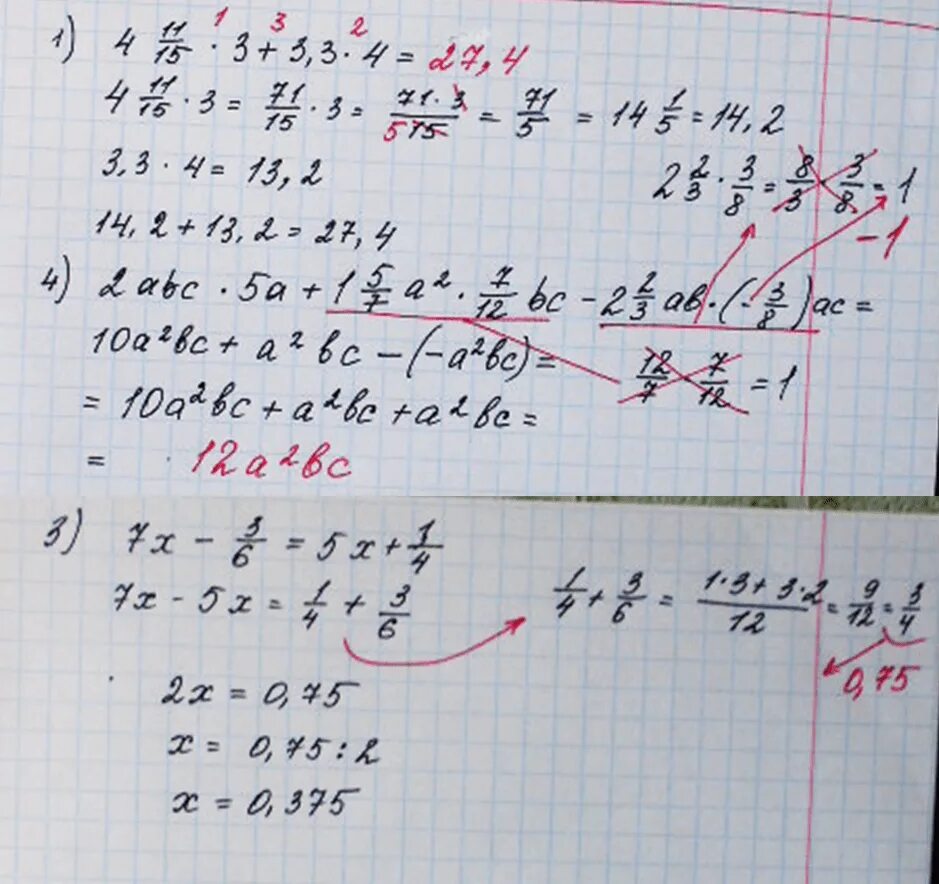 1) 4 11/15 · 3 + 3,3 · 4 = 27,4
1 3 2
4 11/15 · 3 = 71/15 · 3 = 71·3/15 = 71/5 = 14 1/5 = 14,2
5
3,3 · 4 = 13,2
2 2/3 · 3/8 = 8/3 · 3/8 = 1
-1
14,2 + 13,2 = 27,4
4) 2abc · 5a + 1 5/7 a² · 7/12 bc - 2 2/3 ab · (-3/8) ac =
10a²bc + a²bc - (-a²bc) =
12/7 · 7/12 = 1
= 10a²bc + a²bc + a²bc =
= 12a²bc
3) 7x - 3/6 = 5x + 1/4
7x - 5x = 1/4 + 3/6
1/4 + 3/6 = 1·3+3·2/12 = 9/12 = 3/4
0,75
2x = 0,75
x = 0,75 : 2
x = 0,375